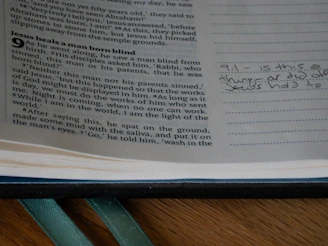 are not yet fifty years old,' they said to
'Very truly I tell you,' Jesus answered, 'before
Abraham was born, I am!' ⁵⁹ At this, they picked
stone him, but Jesus hid himself,
slipping away from the temple grounds.
Jesus heals a man born blind
9 As he went along, he saw a man blind from
his disciples asked him, 'Rabbi, who
this man or his parents, that he was
born blind?'
said Jesus,
'Neither this man nor his parents sinned,'
'but this happened so that the works
of God might be displayed in him. ⁴ As long as it
is day, we must do the works of him who sent
me. Night is coming, when no one can work.
⁵ While I am in the world, I am the light of the
world.'
⁶ After saying this, he spat on the ground,
made some mud with the saliva, and put it on
the man's eyes. ⁷ 'Go,' he told him, 'wash in the
9:1 - is this a
Jesus had to